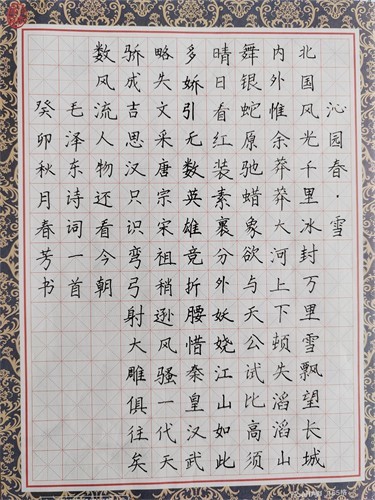 沁园春·雪
北国风光千里冰封万里雪飘望长城
内外惟余莽莽大河上下顿失滔滔山
舞银蛇原驰蜡象欲与天公试比高须
晴日看红装素裹分外妖娆江山如此
多娇引无数英雄竞折腰惜秦皇汉武
略失文采唐宗宋祖稍逊风骚一代天
骄成吉思汉只识弯弓射大雕俱往矣
数风流人物还看今朝
毛泽东诗词一首
癸卯秋月春芳书